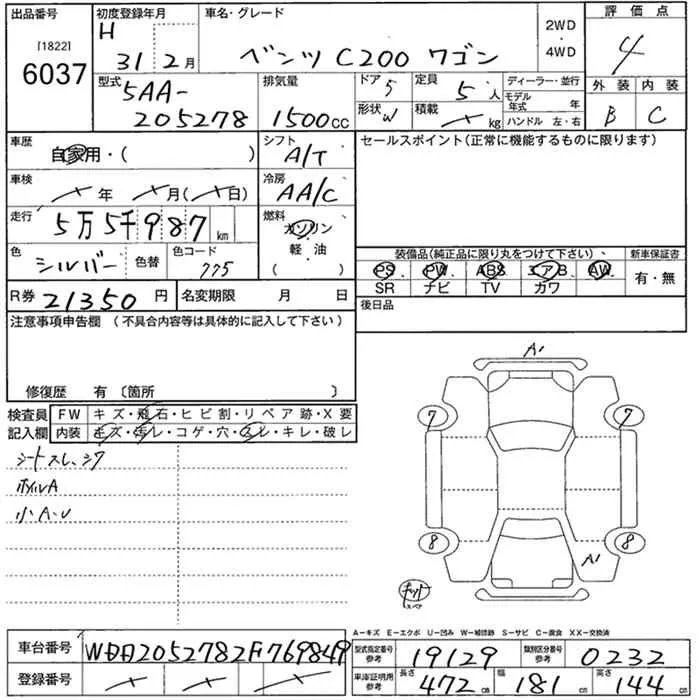 出品番号 初度登録年月 車名・グレード 評価点
[1822] 6037
H 31 2月
ベンツ C200 ワゴン
2WD・4WD
4
外装 内装
B C
型式 5AA-205278
排気量 1500cc
ドア 5 定員 5人
形状 W 積載 kg
ディーラー・並行
モデル年式 年
ハンドル 左・右
車歴 自家用・( )
シフト A/T
セールスポイント(正常に機能するものに限ります)
車検 年 月( 日)
冷房 AA/C
走行 5万5千987km
燃料 ガソリン・軽・油 ( )
色 シルバー 色替 色コード 775
装備品(純正品に限り丸をつけて下さい)、 新車保証書
PS・PW・ABS・エアB・AW・
SR ナビ TV カワ
有・無
R券 21350円 名変期限 月 日
後日品
注意事項申告欄(不具合内容等は具体的に記入して下さい)
修復歴 有〔箇所 〕
検査員記入欄
FW キズ・飛石・ヒビ割・リペア跡・X要
内装 キズ・汚レ・コゲ・穴・スレ・キレ・破レ
シートスレ、シワ
ホイルA
小A・U
A1
7 7
8 8
A1
キット
スペア
A-キズ E-エクボ U-凹み W-補修跡 S-サビ C-腐食 XX-交換済
車台番号 WDD2052782F769849
登録番号
型式指定番号 参考 19129 類別区分番号 参考 0232
車庫証明用 参考 長さ 472cm 幅 181cm 高さ 144cm